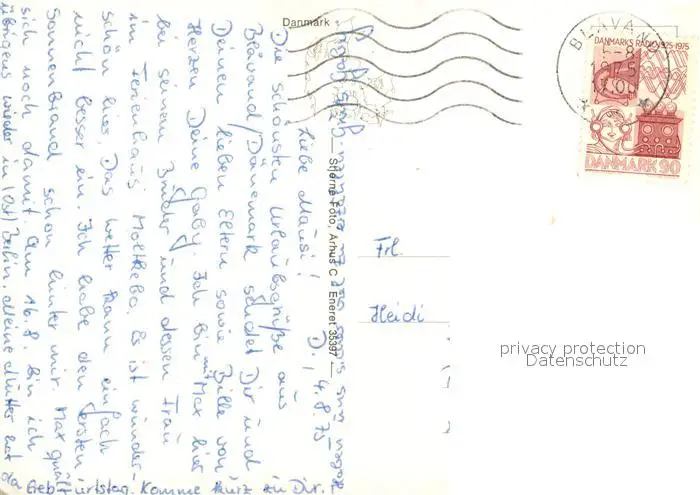 Danmark
Liebe Mausi! D., 4.8.75
Die schönsten Urlaubsgrüße aus
Blåvand/Dänemark sendet Dir und
Deinen lieben Eltern sowie Bille von
Herzen Deine Gaby. Ich bin mit Max hier
bei seinem Bruder und dessen Frau
im Ferienhaus Moltkebo. Es ist wunder-
schön hier. Das Wetter kann einfach
nicht besser ein. Ich habe den ersten
Sonnenbrand schon hinter mir. Max quält
sich noch damit. Am 16.8. bin ich
übrigens wieder in (Ost) Berlin. Meine Mutter hat
da Geburtstag. Komme kurz zu Dir.
Stjerne-Foto, Århus C Eneret 35397
Frl.
Heidi
BLÅVAND
DANMARKS RADIO 1925-1975
DANMARK 90
privacy protection
Datenschutz